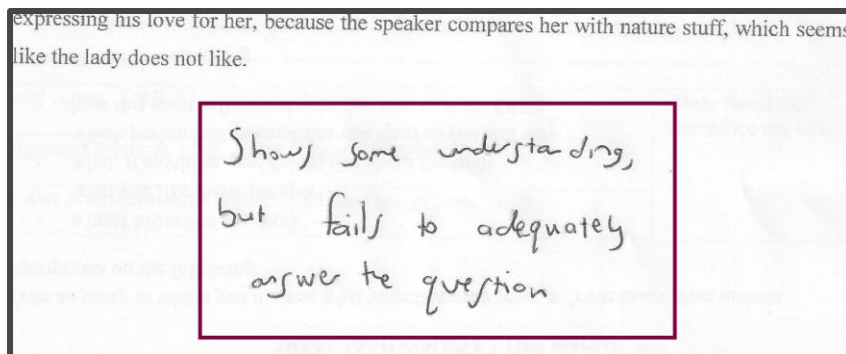 expressing his love for her, because the speaker compares her with nature stuff, which seems
like the lady does not like.
Shows some understanding,
but fails to adequately
answer the question